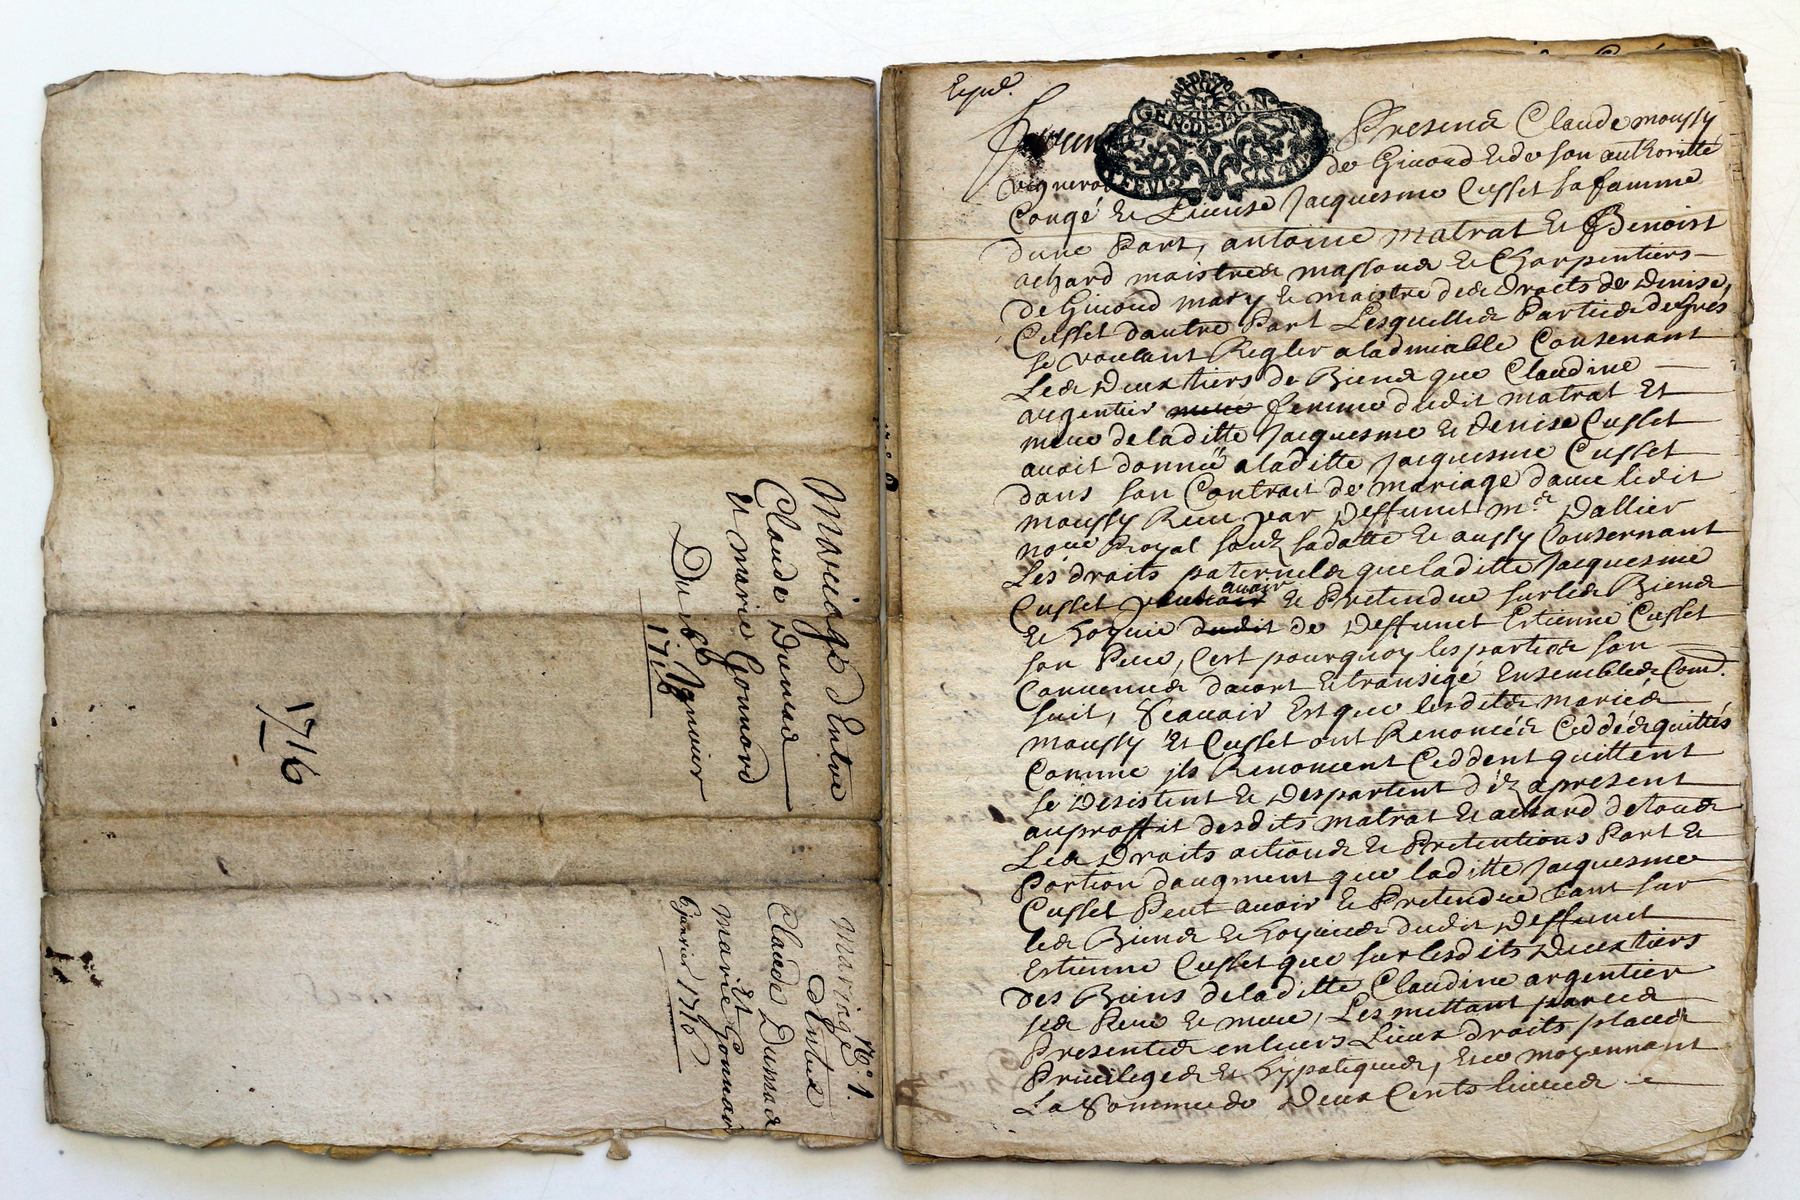 Mariage d'Entre
Claude Dumas
Et marie Gonnard
Du 6e Janvier
1716
1716
No. 1.
Mariage
d'Entre
Claude Dumas
Et
marie Gonnard
6 janvier 1716
Expé.
GEN. DE LYON
Presens Claude moussy
vigneron de Givord & de son authoritté
Congé & License Jacquesme Cusset sa famme
dune Part, antoine matrat & Benoist
achard maistres massons & Charpentiers
de Givord mary & maistre des droits de Denise
Cusset dautre Part Lesquelles Parties desires
se voulant Regler a ladmiable Consernant
Les Deux tiers de Biens que Claudine
argentier femme dudit matrat Et
mere de laditte Jacquesme & Denise Cusset
avoit donné a laditte Jacquesme Cusset
dans son Contrat de mariage davec ledit
moussy Receu par Deffunct Me Dallier
nore Royal sous sa datte & aussy Consernant
Les droits paternels que laditte Jacquesme
Cusset avoir & Pretendre sur les Biens
& hoyrie de Deffunct Estienne Cusset
son Pere, Cest pourquoy les parties son
Convenues dacort & transigé Ensembles Come.
suit, Scavoir Est que lesdits mariés
moussy Et Cusset ont Renoncés Ceddés quittés
Comme jls Renoncent Ceddent quittent
se Desistent & Despartent déz apresent
auproffit desdits matrat & achard de tous
Les Droits actions & Pretentions Part &
Portion daugment que laditte Jacquesme
Cusset Peut avoir & Pretendre tant sur
les Biens & hoyries dudit Deffunct
Estienne Cusset que sur lesdits Deux tiers
des Biens de laditte Claudine argentier
ses Pere & mere, Les mettant par ces
Presentes en leurs Lieux droits places
Privileges & hypoteques, & ce moyennant
La Somme de Deux Cents livres